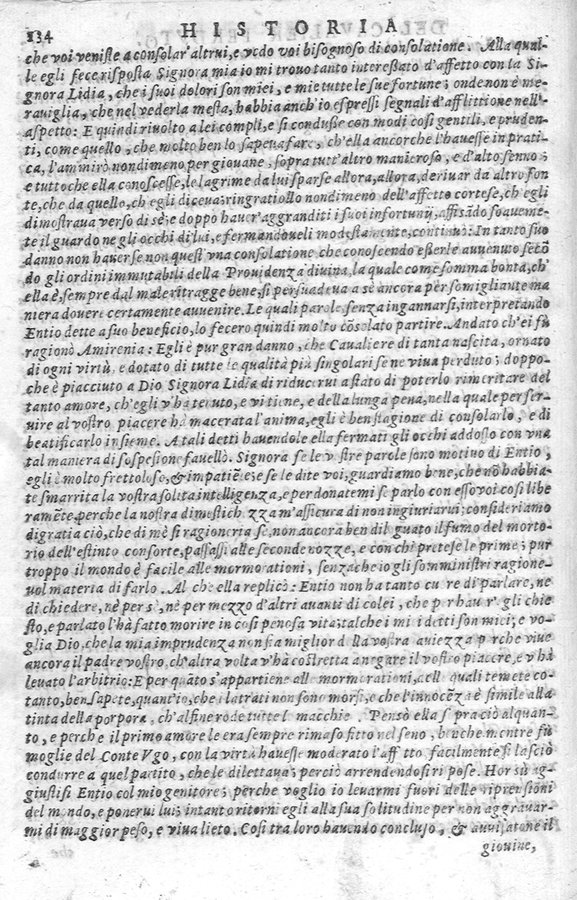 134 HISTORIA
che voi veniste a consolar' altrui, e vedo voi bisognoso di consolatione. Alla qual-
le egli fece risposta Signora mia io mi trovo tanto interessato d'affetto con la Si-
gnora Lidia, che i suoi dolori son miei, e mie tutte le sue fortune; onde non è me-
raviglia, che nel vederla mesta, habbia anch'io espressi segnali d'afflittione nell'
aspetto: E quindi rivolto a lei complì, e si condusse con modi così gentili, e pruden-
ti, come quello, che molto ben lo sapeva fare, ch'ella ancorche l'havesse in prati-
ca, l'ammirò nondimeno per giovane, sopra tutt'altro manieroso, e d'alto senno;
e tuttoche ella conoscesse, le lagrime da lui sparse allora, allora, derivar da altro fon
te, che da quello, ch'egli diceva; ringratiollo nondimeno dell'affetto cortese, ch'egli
dimostrava verso di sè; e doppo haver'aggranditi i suoi infortunij, affisãdo soaveme-
te il guardo ne gli occhi di lui, e fermandoveli modestamente, continuò: In tanto suo
danno non haverse non quest'vna consolatione che conoscendo esserle avvenuto secõ
do gli ordini immutabili della Providenza divina, la quale come somma bontà, ch'
ella è, sempre dal male ritragge bene, si persuadeva a sè ancora per somigliante ma
niera dovere certamente avvenire. Le quali parole senza ingannarsi, interpretando
Entio dette a suo beneficio, lo fecero quindi molto cõsolato partire. Andato ch'ei fù
ragionò Amirenia: Egli è pur gran danno, che Cavaliere di tanta nascita, ornato
di ogni virtù, e dotato di tutte le qualità più singolari se ne viva perduto; doppo-
che è piacciuto a Dio Signora Lidia di riducervi a stato di poterlo rimeritare del
tanto amore, ch'egli v'ha tenuto, e vi tiene, e della lunga pena, nella quale per ser-
vire al vostro piacere hà macerata l'anima, egli è ben stagione di consolarlo, e di
beatificarlo insieme. A tali detti havendole ella fermati gli occhi addosso con vna
tal maniera di sospesione favellò. Signora se le vostre parole sono motivo di Entio,
egli è molto frettoloso, & impatiẽte; e se le dite voi, guardiamo bene, che nõ habbia-
te smarrita la vostra solita intelligenza, e perdonatemi se parlo con esso voi così libe
ramẽte, perche la nostra dimestichezza m'assicura di non ingiuriarvi; consideriamo
di gratia ciò, che di mè si ragioneria se, non ancora ben dileguato il fumo del morto-
rio dell'estinto consorte, passassi alle seconde nozze, e con chi pretese le prime; pur
troppo il mondo è facile alle mormorationi, senza che io gli somministri ragione-
vol materia di farlo. Al che ella replicò: Entio non ha tanto cuore di parlare, ne
di chiedere, nè per sè, nè per mezzo d'altri avanti di colei, che per haver gli chie
sto, e parlato l'hà fatto morire in così penosa vita; talche i miei detti son miei; e vo-
glia Dio, che la mia imprudenza non sia miglior della vostra aviezza perche vive
ancora il padre vostro, ch'altra volta v'hà costretta a negare il vostro piacere, e v'hà
levato l'arbitrio: E per quãto s'appartiene alle mormorationi, delle quali temete co-
tanto, ben sapete, quant'io, che i latrati non sono morsi, e che l'innocẽza è simile alla
tinta della porpora, ch'alfine rode tutte le macchie. Pensò ella sopra ciò alquan-
to, e perche il primo amore le era sempre rimaso fitto nel seno, benche mentre fù
moglie del Conte Vgo, con la virtù havesse moderato l'affetto facilmente si lasciò
condurre a quel partito, che le dilettava; perciò arrendendosi rispose. Hor sù ag-
giustisi Entio col mio genitore; perche voglio io levarmi fuori delle riprensioni
del mondo, e ponervi lui; intanto ritorni egli alla sua solitudine per non aggravar-
mi di maggior peso, e viva lieto. Così tra loro havendo concluso, & avvisatone il
giovine,